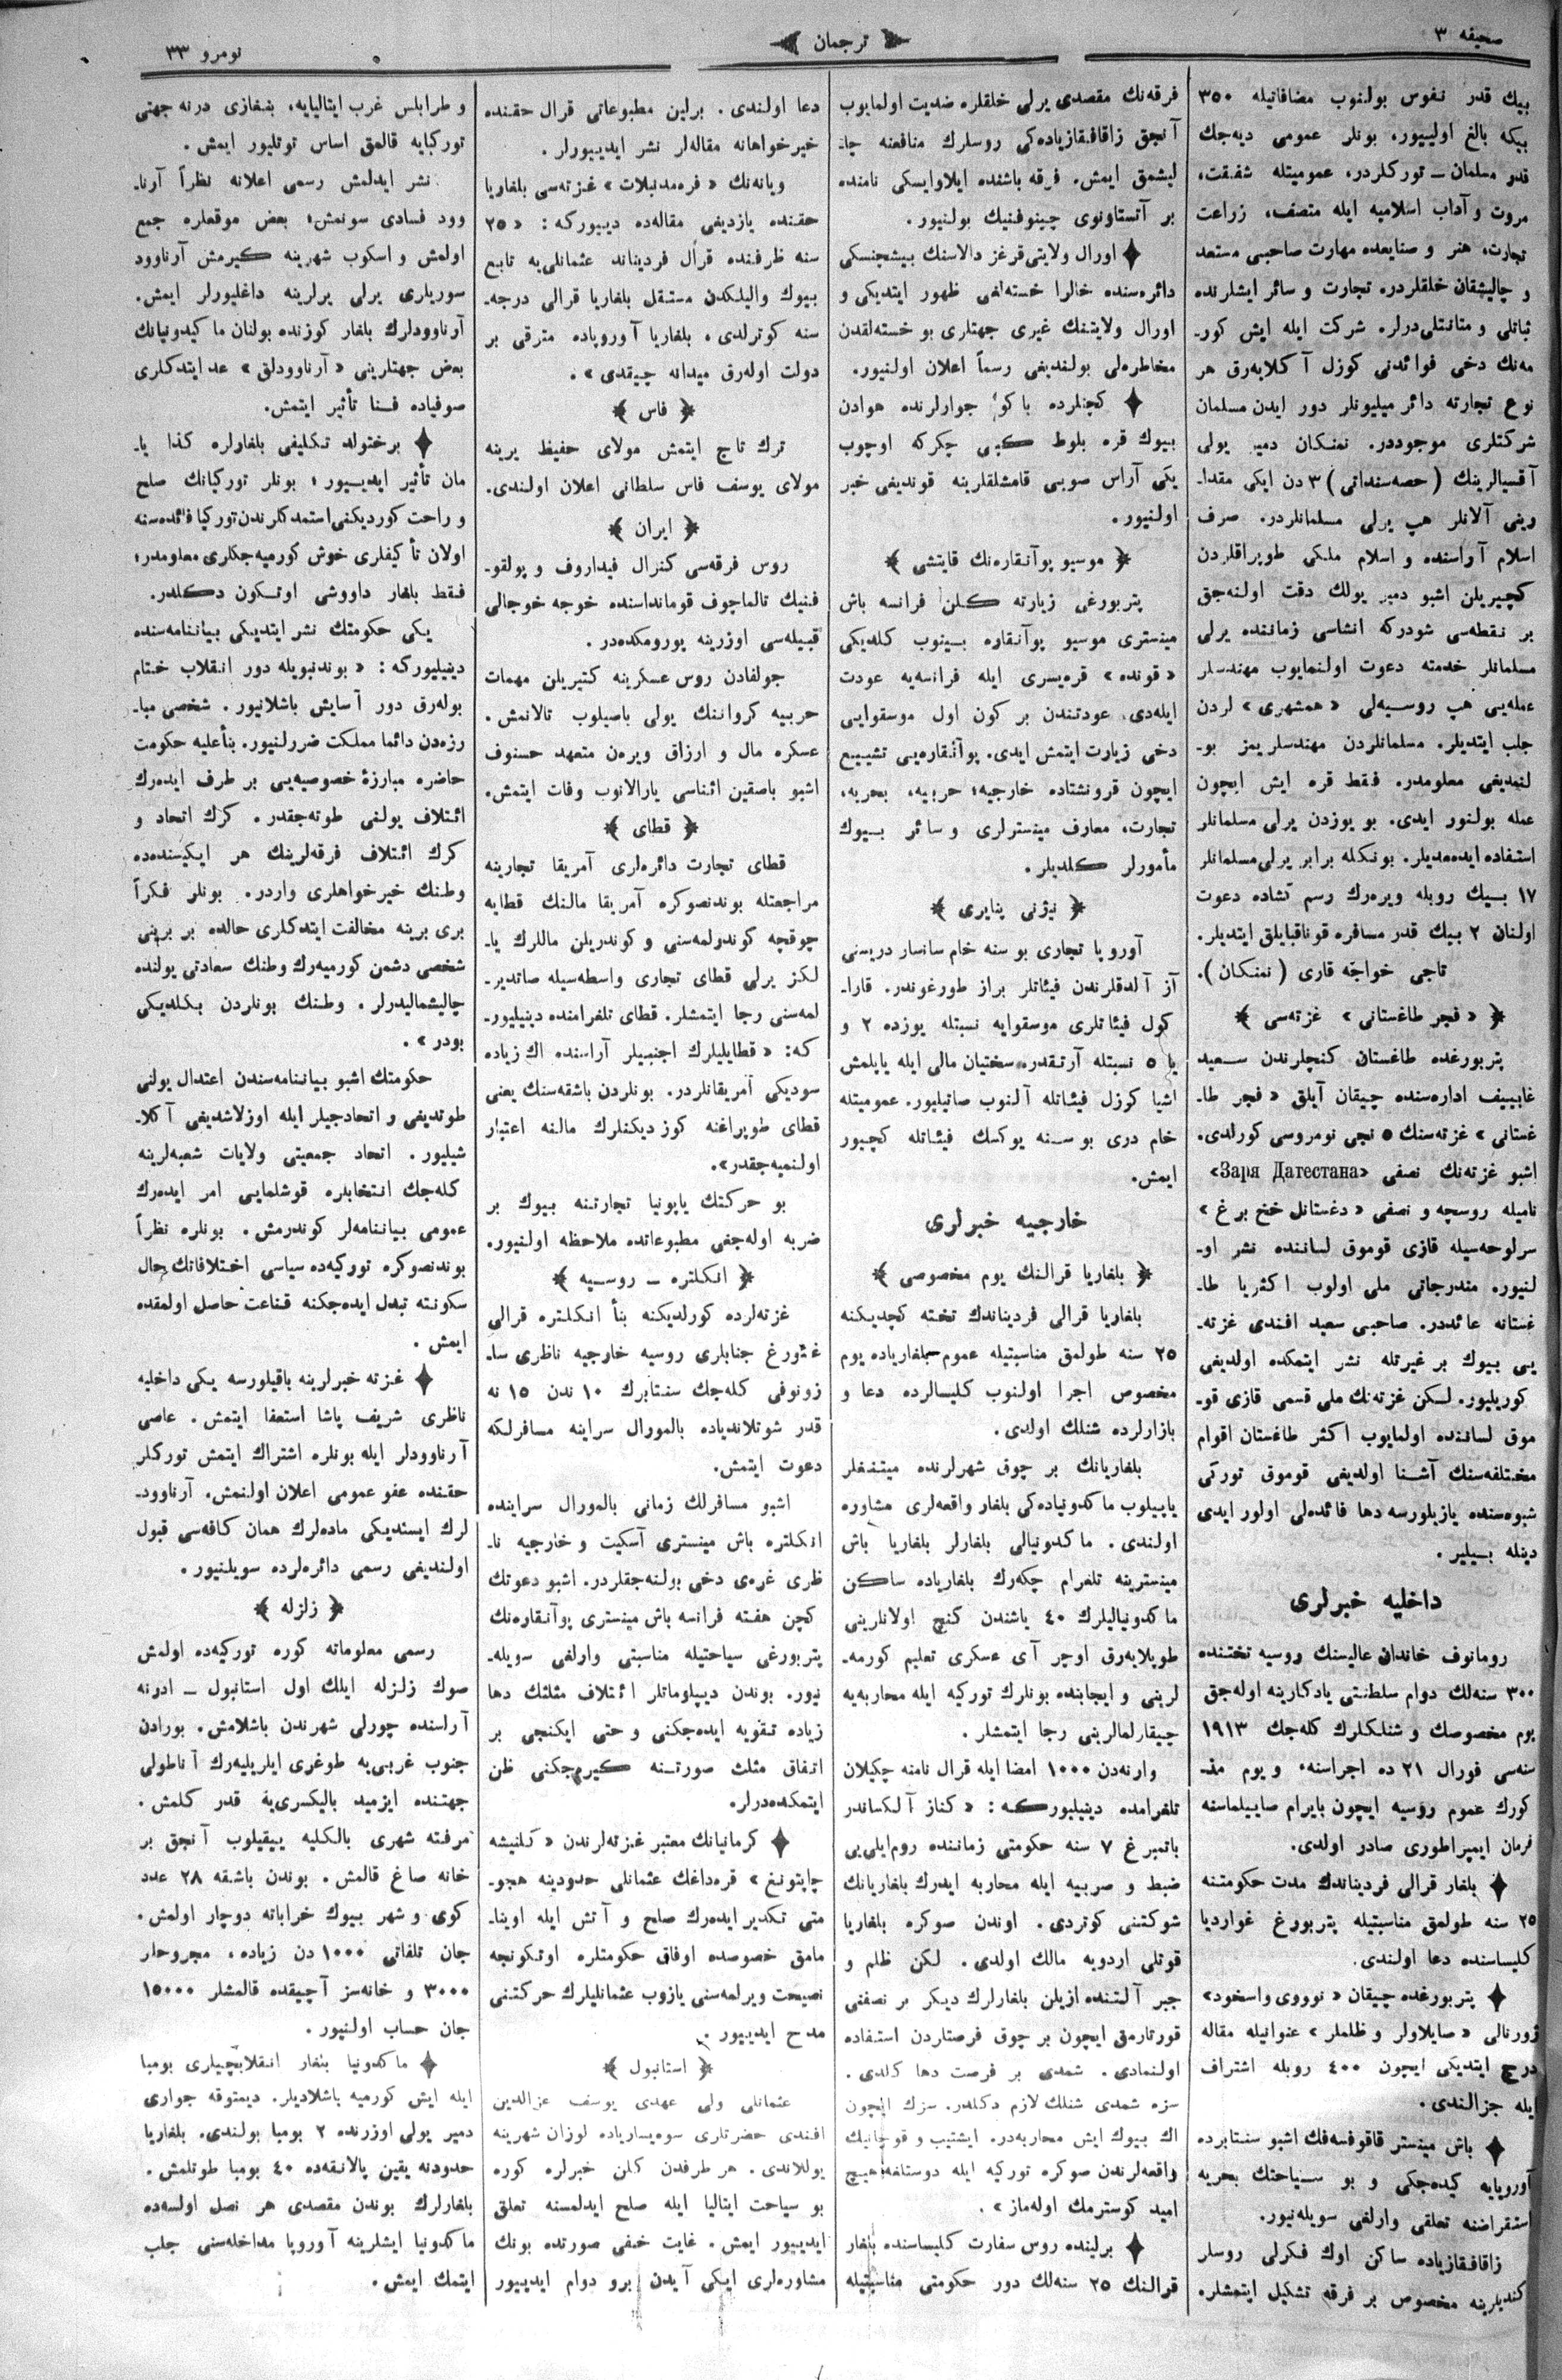 صحیفه ۳
ترجمان
نومرو ۳۳
بیك قدر نفوس بولنوب مضافاتیله ۳۵۰
بیكه بالغ اولییور. بونلر عمومی دیه‌جك
قدر مسلمان ــ تورکلردر، عمومیتله شفقت،
مروت و آداب اسلامیه ایله متصف، زراعت
تجارت، هنر و صنایعده مهارت صاحبی مستعد
و چالیشقان خلقلردر. تجارت و سائر ایشلرنده
ثباتلی و متانتلی‌درلر. شرکت ایله ایش کور-
مه‌نك دخی فوائدنی کوزل آکلایه‌رق هر
نوع تجارته دائر میلیونلر دور ایدن مسلمان
شرکتلری موجوددر. نمنکان دمیر یولی
آقسیالرینك (حصه‌سنداتی) ۳ دن ایکی مقدا-
رینی آلانلر هپ یرلی مسلمانلردر. صرف
اسلام آراسنده و اسلام ملکی طوپراقلردن
کچیریلن اشبو دمیر یولك دقت اولنه‌جق
بر نقطه‌سی شودرکه انشاسی زماننده یرلی
مسلمانلر خدمته دعوت اولنمایوب مهندسلر
عمله‌یی هپ روسیه‌لی «همشهری» لردن
جلب ایتدیلر. مسلمانلردن مهندسلریمز بو-
لنمدیغی معلومدر. فقط قره ایش ایچون
عمله بولنور ایدی. بو یوزدن یرلی مسلمانلر
استفاده ایده‌مدیلر. بونکله برابر یرلی مسلمانلر
۱۷ بیك روبله ویره‌رك رسم کشاده دعوت
اولنان ۲ بیك قدر مسافره قوناقبایلق ایتدیلر.
تاجی خواجه قاری (نمنکان).
﴿ «فجر طاغستانی» غزته‌سی ﴾
پتربورغده طاغستان کنچلرندن سعید
غابییف اداره‌سنده چیقان آیلق «فجر طا-
غستانی» غزته‌سنك ۵ نجی نومروسی کورلدی.
اشبو غزته‌نك نصفی «Заря Дагестана»
نامیله روسچه و نصفی «دغستانل خخ برغ»
سرلوحه‌سیله قازی قوموق لساننده نشر او-
لنیور. مندرجاتی ملی اولوب اکثریا طا-
غستانه عائددر. صاحبی سعید افندی غزته-
یی بیوك بر غیرتله نشر ایتمکده اولدیغی
کوریلیور. لکن غزته‌نك ملی قسمی قازی قو-
موق لساننده اولمایوب اکثر طاغستان اقوام
مختلفه‌سنك آشنا اولدیغی قوموق تورکی
شیوه‌سنده یازیلورسه دها فائده‌لی اولور ایدی
دینله بیلیر.
داخلیه خبرلری
رومانوف خاندان عالیسنك روسیه تختنده
۳۰۰ سنه‌لك دوام سلطنتی یادکارینه اوله‌جق
یوم مخصوصك و شنلکلرك کله‌جك ۱۹۱۳
سنه‌سی فورال ۲۱ ده اجراسنه و یوم مذ-
کورك عموم روسیه ایچون بایرام صاییلماسنه
فرمان ایمپراطوری صادر اولدی.
✦ بلغار قرالی فردیناندك مدت حکومتنه
۲۵ سنه طولمق مناسبتیله پتربورغ غواردیا
کلیساسنده دعا اولندی.
✦ پتربورغده چیقان «نووی واسخود»
ژورنالی «صایلاولر و ظلملر» عنوانیله مقاله
درج ایتدیکی ایچون ۴۰۰ روبله اشتراف
ایله جزالندی.
✦ باش مینستر قاقوفسه‌فك اشبو سنتابرده
آوروپایه کیده‌جکی و بو سیاحتك بحریه
استقراضنه تعلقی وارلغی سویله‌نیور.
زاقافقازیاده ساکن اوك فکرلی روسلر
کندیلرینه مخصوص بر فرقه تشکیل ایتمشلر.
فرقه‌نك مقصدی یرلی خلقلره ضدیت اولمایوب
آنجق زاقافقازیاده‌کی روسلرك منافعنه چا-
لیشمق ایمش. فرقه باشنده ایلاوایسکی نامنده
بر آتستاونوی چینوفنیك بولنیور.
✦ اورال ولایتی قرغز دالاسنك بیشچنسکی
دائره‌سنده خالرا خسته‌لغی ظهور ایتدیکی و
اورال ولایتنك غیری جهتلری بو خسته‌لقدن
مخاطره‌لی بولندیغی رسماً اعلان اولنیور.
✦ کچنلرده باکو جوارلرنده هوادن
بیوك قره بلوط کبی چکرکه اوچوب
یکی آراس صویی قامشلقلرینه قوندیغی خبر
اولنیور.
﴿ موسیو پوآنقاره‌نك قایتشی ﴾
پتربورغی زیارته کلن فرانسه باش
مینستری موسیو پوآنقاره بینوب کلدیکی
«قونده» قره‌یسری ایله فرانسه‌یه عودت
ایله‌دی. عودتندن بر کون اول موسقوایی
دخی زیارت ایتمش ایدی. پوآنقاره‌یی تشییع
ایچون قرونشتاده خارجیه؛ حربیه، بحریه،
تجارت، معارف مینسترلری و سائر بیوك
مأمورلر کلدیلر.
﴿ نیژنی پنایری ﴾
آوروپا تجاری بو سنه خام سانسار دریسنی
آز آلدقلرندن فیئاتلر براز طورغوندر. قارا-
کول فیئاتلری موسقوایه نسبتله یوزده ۲ و
یا ۵ نسبتله آرتقدر. سختیان مالی ایله یاپلمش
اشیا کوزل فیئاتله آلنوب صاتیلیور. عمومیتله
خام دری بو سنه یوکسك فیئاتله کچیور
ایمش.
خارجیه خبرلری
﴿ بلغاریا قرالنك یوم مخصوصی ﴾
بلغاریا قرالی فردیناندك تخته کچدیکنه
۲۵ سنه طولمق مناسبتیله عموم بلغاریاده یوم
مخصوص اجرا اولنوب کلیسالرده دعا و
بازارلرده شنلك اولدی.
بلغاریانك بر چوق شهرلرنده میتنغلر
یاپیلوب ماکدونیاده‌کی بلغار واقعه‌لری مشاوره
اولندی. ماکدونیالی بلغارلر بلغاریا باش
مینسترینه تلغرام چکه‌رك بلغاریاده ساکن
ماکدونیالیلرك ۴۰ یاشندن کنچ اولانلرینی
طوپلایه‌رق اوچر آی عسکری تعلیم کورمه-
لرینی و ایجابنده بونلرك تورکیه ایله محاربه‌یه
چیقارلمالرینی رجا ایتمشلر.
وارنه‌دن ۱۰۰۰ امضا ایله قرال نامنه چکیلان
تلغرامده دینیلیورکه: «کناز آلکساندر
باتمبرغ ۷ سنه حکومتی زماننده روم‌ایلی‌یی
ضبط و صربیه ایله محاربه ایدرك بلغاریانك
شوکتنی کوتردی. اوندن صوکره بلغاریا
قوتلی اردویه مالك اولدی. لکن ظلم و
جبر آلتنده ازیلن بلغارلرك دیکر بر نصفنی
قورتارمق ایچون بر چوق فرصتلردن استفاده
اولنمادی. شمدی بر فرصت دها کلدی.
سزه شمدی شنلك لازم دکلدر. سزك ایچون
اك بیوك ایش محاربه‌در. ایشتیب و قوچانیك
واقعه‌لرندن صوکره تورکیه ایله دوستلغه هیچ
امید کوسترمك اوله‌ماز».
✦ برلینده روس سفارت کلیساسنده بلغار
قرالنك ۲۵ سنه‌لك دور حکومتی مناسبتیله
دعا اولندی. برلین مطبوعاتی قرال حقنده
خیرخواهانه مقاله‌لر نشر ایدییورلر.
ویانه‌نك «فره‌مدنبلات» غزته‌سی بلغاریا
حقنده یازدیغی مقاله‌ده دییورکه: «۲۵
سنه ظرفنده قرال فردیناند عثمانلی‌یه تابع
بیوك والیلکدن مستقل بلغاریا قرالی درجه-
سنه کوترلدی. بلغاریا آوروپاده مترقی بر
دولت اوله‌رق میدانه چیقدی».
﴿ فاس ﴾
ترك تاج ایتمش مولای حفیظ یرینه
مولای یوسف فاس سلطانی اعلان اولندی.
﴿ ایران ﴾
روس فرقه‌سی کنرال فیداروف و پولقو-
فنیك تالماچوف قومانداسنده خوجه خوجالی
قبیله‌سی اوزرینه یورومکده‌در.
جولفادن روس عسکرینه کتیریلن مهمات
حربیه کرواننك یولی باصیلوب تالانمش.
عسکره مال و ارزاق ویره‌ن متعهد حسنوف
اشبو باصقین اثناسی یارالانوب وفات ایتمش.
﴿ قطای ﴾
قطای تجارت دائره‌لری آمریقا تجارینه
مراجعتله بوندنصوکره آمریقا مالنك قطایه
چوقچه کوندولمه‌سنی و کوندریلن ماللرك یا-
لکز یرلی قطای تجاری واسطه‌سیله صاتدیر-
لمه‌سنی رجا ایتمشلر. قطای تلغرامنده دینیلیور-
که: «قطایلیلرك اجنبیلر آراسنده اك زیاده
سودیکی آمریقانلردر. بونلردن باشقه‌سنك یعنی
قطای طوپراغنه کوز دیکنلرك مالنه اعتبار
اولنمیه‌جقدر».
بو حرکتك یاپونیا تجارتنه بیوك بر
ضربه اوله‌جغی مطبوعاتده ملاحظه اولنیور.
﴿ انکلتره ــ روسیه ﴾
غزته‌لرده کورلدیکنه بنأ انکلتره قرالی
غئورغ جنابلری روسیه خارجیه ناظری سا-
زونوفی کله‌جك سنتابرك ۱۰ ندن ۱۵ نه
قدر شوتلاندیاده بالمورال سراینه مسافرلکه
دعوت ایتمش.
اشبو مسافرلك زمانی بالمورال سراینده
انکلتره باش مینستری آسکیت و خارجیه نا-
ظری غره‌ی دخی بولنه‌جقلردر. اشبو دعوتك
کچن هفته فرانسه باش مینستری پوآنقاره‌نك
پتربورغی سیاحتیله مناسبتی وارلغی سویله-
نیور. بوندن دیپلوماتلر ائتلاف مثلثك دها
زیاده تقویه ایده‌جکنی و حتی ایکنجی بر
اتفاق مثلث صورتنه کیره‌جکنی ظن
ایتمکده‌درلر.
✦ کرمانیانك معتبر غزته‌لرندن «کلنیشه
چایتونغ» قره‌داغك عثمانلی حدودینه هجو-
متی تکدیر ایده‌رك صلح و آتش ایله اوینا-
مامق خصوصده اوفاق حکومتلره اوتکونجه
نصیحت ویرلمه‌سنی یازوب عثمانلیلرك حرکتنی
مدح ایدییور.
﴿ استانبول ﴾
عثمانلی ولی عهدی یوسف عزالدین
افندی حضرتلری سوه‌یساریاده لوزان شهرینه
یوللاندی. هر طرفدن کلن خبرلره کوره
بو سیاحت ایتالیا ایله صلح ایدلمسنه تعلق
ایدییور ایمش. غایت خفی صورتده بونك
مشاوره‌لری ایکی آیدن برو دوام ایدییور
و طرابلس غرب ایتالیایه، بنغازی درنه جهتی
تورکیایه قالمق اساس توتلیور ایمش.
نشر ایدلمش رسمی اعلانه نظراً آرنا-
وود فسادی سونمش؛ بعض موقعلره جمع
اولمش و اسکوب شهرینه کیرمش آرناوود
سوریلری یرلی یرلرینه داغلیورلر ایمش.
آرناوودلرك بلغار کوزنده بولنان ماکیدونیانك
بعض جهتلرینی «آرناوودلق» عد ایتدکلری
صوفیاده فنا تأثیر ایتمش.
✦ برختولد تکلیفی بلغارلره کذا یا-
مان تأثیر ایدییور؛ بونلر تورکیانك صلح
و راحت کوردیکنی استمدکلرندن تورکیا فائده‌سنه
اولان تأکیفلری خوش کورمیه‌جکلری معلومدر؛
فقط بلغار داووشی اوتکون دکلدر.
یکی حکومتك نشر ایتدیکی بیاننامه‌سنده
دینیلیورکه: «بوندنبویله دور انقلاب ختام
بوله‌رق دور آسایش باشلانیور. شخصی مبا-
رزه‌دن دائما مملکت ضررلنیور. بنأعلیه حکومت
حاضره مبارزهٔ خصوصیه‌یی بر طرف ایده‌رك
ائتلاف یولنی طوته‌جقدر. کرك اتحاد و
کرك ائتلاف فرقه‌لرینك هر ایکیسنده‌ده
وطنك خیرخواهلری واردر. بونلر فکراً
بری برینه مخالفت ایتدکلری حالده بر برینی
شخصی دشمن کورمیه‌رك وطنك سعادتی یولنده
چالیشمالیدرلر. وطنك بونلردن بکلدیکی
بودر».
حکومتك اشبو بیاننامه‌سندن اعتدال یولنی
طوتدیغی و اتحادجیلر ایله اوزلاشدیغی آکلا-
شیلیور. اتحاد جمعیتی ولایات شعبه‌لرینه
کله‌جك انتخابلره قوشلمایی امر ایده‌رك
عمومی بیاننامه‌لر کوندرمش. بونلره نظراً
بوندنصوکره تورکیه‌ده سیاسی اختلافاتك حال
سکونته تبدل ایده‌جکنه قناعت حاصل اولمقده
ایمش.
✦ غزته خبرلرینه باقیلورسه یکی داخلیه
ناظری شریف پاشا استعفا ایتمش. عاصی
آرناوودلر ایله بونلره اشتراك ایتمش تورکلر
حقنده عفو عمومی اعلان اولنمش. آرناوود-
لرك ایستدیکی ماده‌لرك همان کافه‌سی قبول
اولندیغی رسمی دائره‌لرده سویلنیور.
﴿ زلزله ﴾
رسمی معلوماته کوره تورکیه‌ده اولمش
صوك زلزله ایلك اول استانبول ــ ادرنه
آراسنده چورلی شهرندن باشلامش. بورادن
جنوب غربی‌یه طوغری ایلریلیه‌رك آناطولی
جهتنده ایزمید بالیکسری‌یه قدر کلمش.
مرفته شهری بالکلیه ییقیلوب آنجق بر
خانه صاغ قالمش. بوندن باشقه ۲۸ عدد
کوی و شهر بیوك خراباته دوچار اولمش.
جان تلفاتی ۱۰۰۰ دن زیاده، مجروحلر
۳۰۰۰ و خانه‌سز آچیقده قالمشلر ۱۵۰۰۰
جان حساب اولنیور.
✦ ماکدونیا بلغار انقلابچیلری بومبا
ایله ایش کورمیه باشلادیلر. دیمتوقه جواری
دمیر یولی اوزرنده ۲ بومبا بولندی. بلغاریا
حدودنه یقین پالانقه‌ده ۴۰ بومبا طوتلمش.
بلغارلرك بوندن مقصدی هر نصل اولسه‌ده
ماکدونیا ایشلرینه آوروپا مداخله‌سنی جلب
ایتمك ایمش.